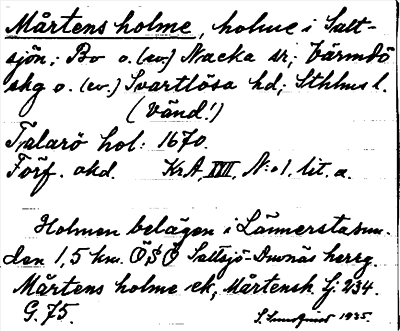 Mårtens holme, holme i Salt-
sjön; Bo o. (ev.) Nacka sr; Värmdö
skg o. (ev.) Svartlösa hd; Sthlms l.
(Vänd!)
Talarö hol: 1670.
Förf. okd. KrA, XVII, N:o 1, lit. a.
Holmen belägen i Lännerstasun-
den 1,5 km. ÖSÖ Saltsjö-Duvnäs herrg.
Mårtens holme ek, Mårtensh. f: 234.
G. 75.
1935.